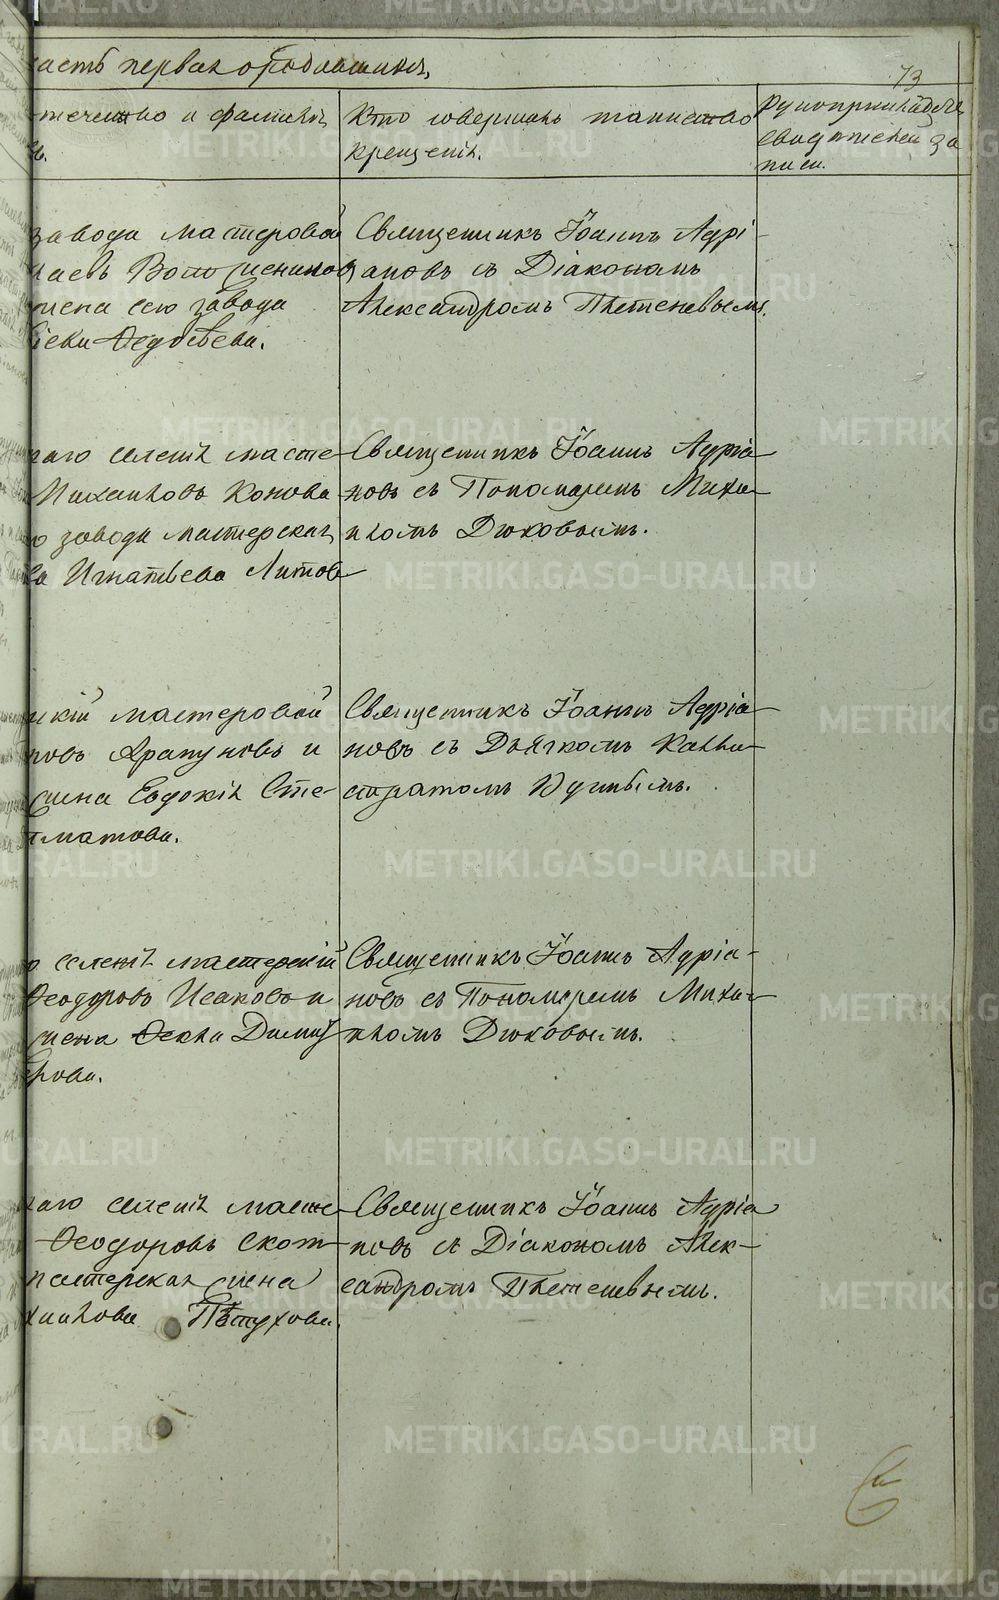 часть первая о родившихся,
73
отечество и фамилія
Кто совершалъ таинство
крещенія.
Рукоприкладст
свидѣтелей за
писи.
завода мастеровой
жена сего завода
Федосѣева.
Священникъ Іоаннъ Адрі-
ановъ съ Діакономъ
Александромъ Плетеневымъ.
селенія масте-
Михаиловъ Конова-
завода мастерская
Игнатьева Литов-
Священникъ Іоаннъ Адріа-
новъ съ Пономаремъ Миха-
иломъ Дюковымъ.
мастеровой
и
жена Евдокія Сте-
Священникъ Іоаннъ Адріа-
новъ съ Дьячкомъ Калли-
стратомъ
селенія мастерскій
Ѳеодоровъ Исаковъ и
жена Ѳекла Дими
Священникъ Іоаннъ Адріа-
новъ съ Пономаремъ Миха-
иломъ Дюковымъ.
селенія масте-
Ѳеодоровъ Скот-
мастерская жена
Пѣтухова.
Священникъ Іоаннъ Адріа
новъ съ Діакономъ Алек-
сандромъ Плетеневымъ.
METRIKI.GASO-URAL.RU